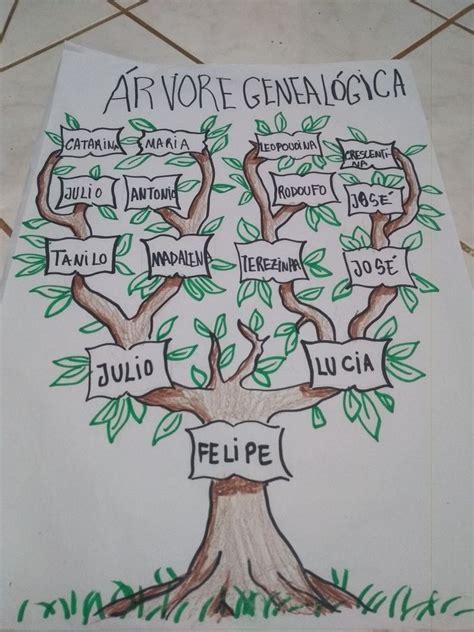 ÁRVORE GENEALÓGICA
CATARINA
MARIA
LEOPOUDINA
CRESCENTI
NA
JULIO
ANTONIO
RODOUFO
JOSÉ
TANILO
MADALENA
TEREZINHA
JOSÉ
JULIO
LUCIA
FELIPE